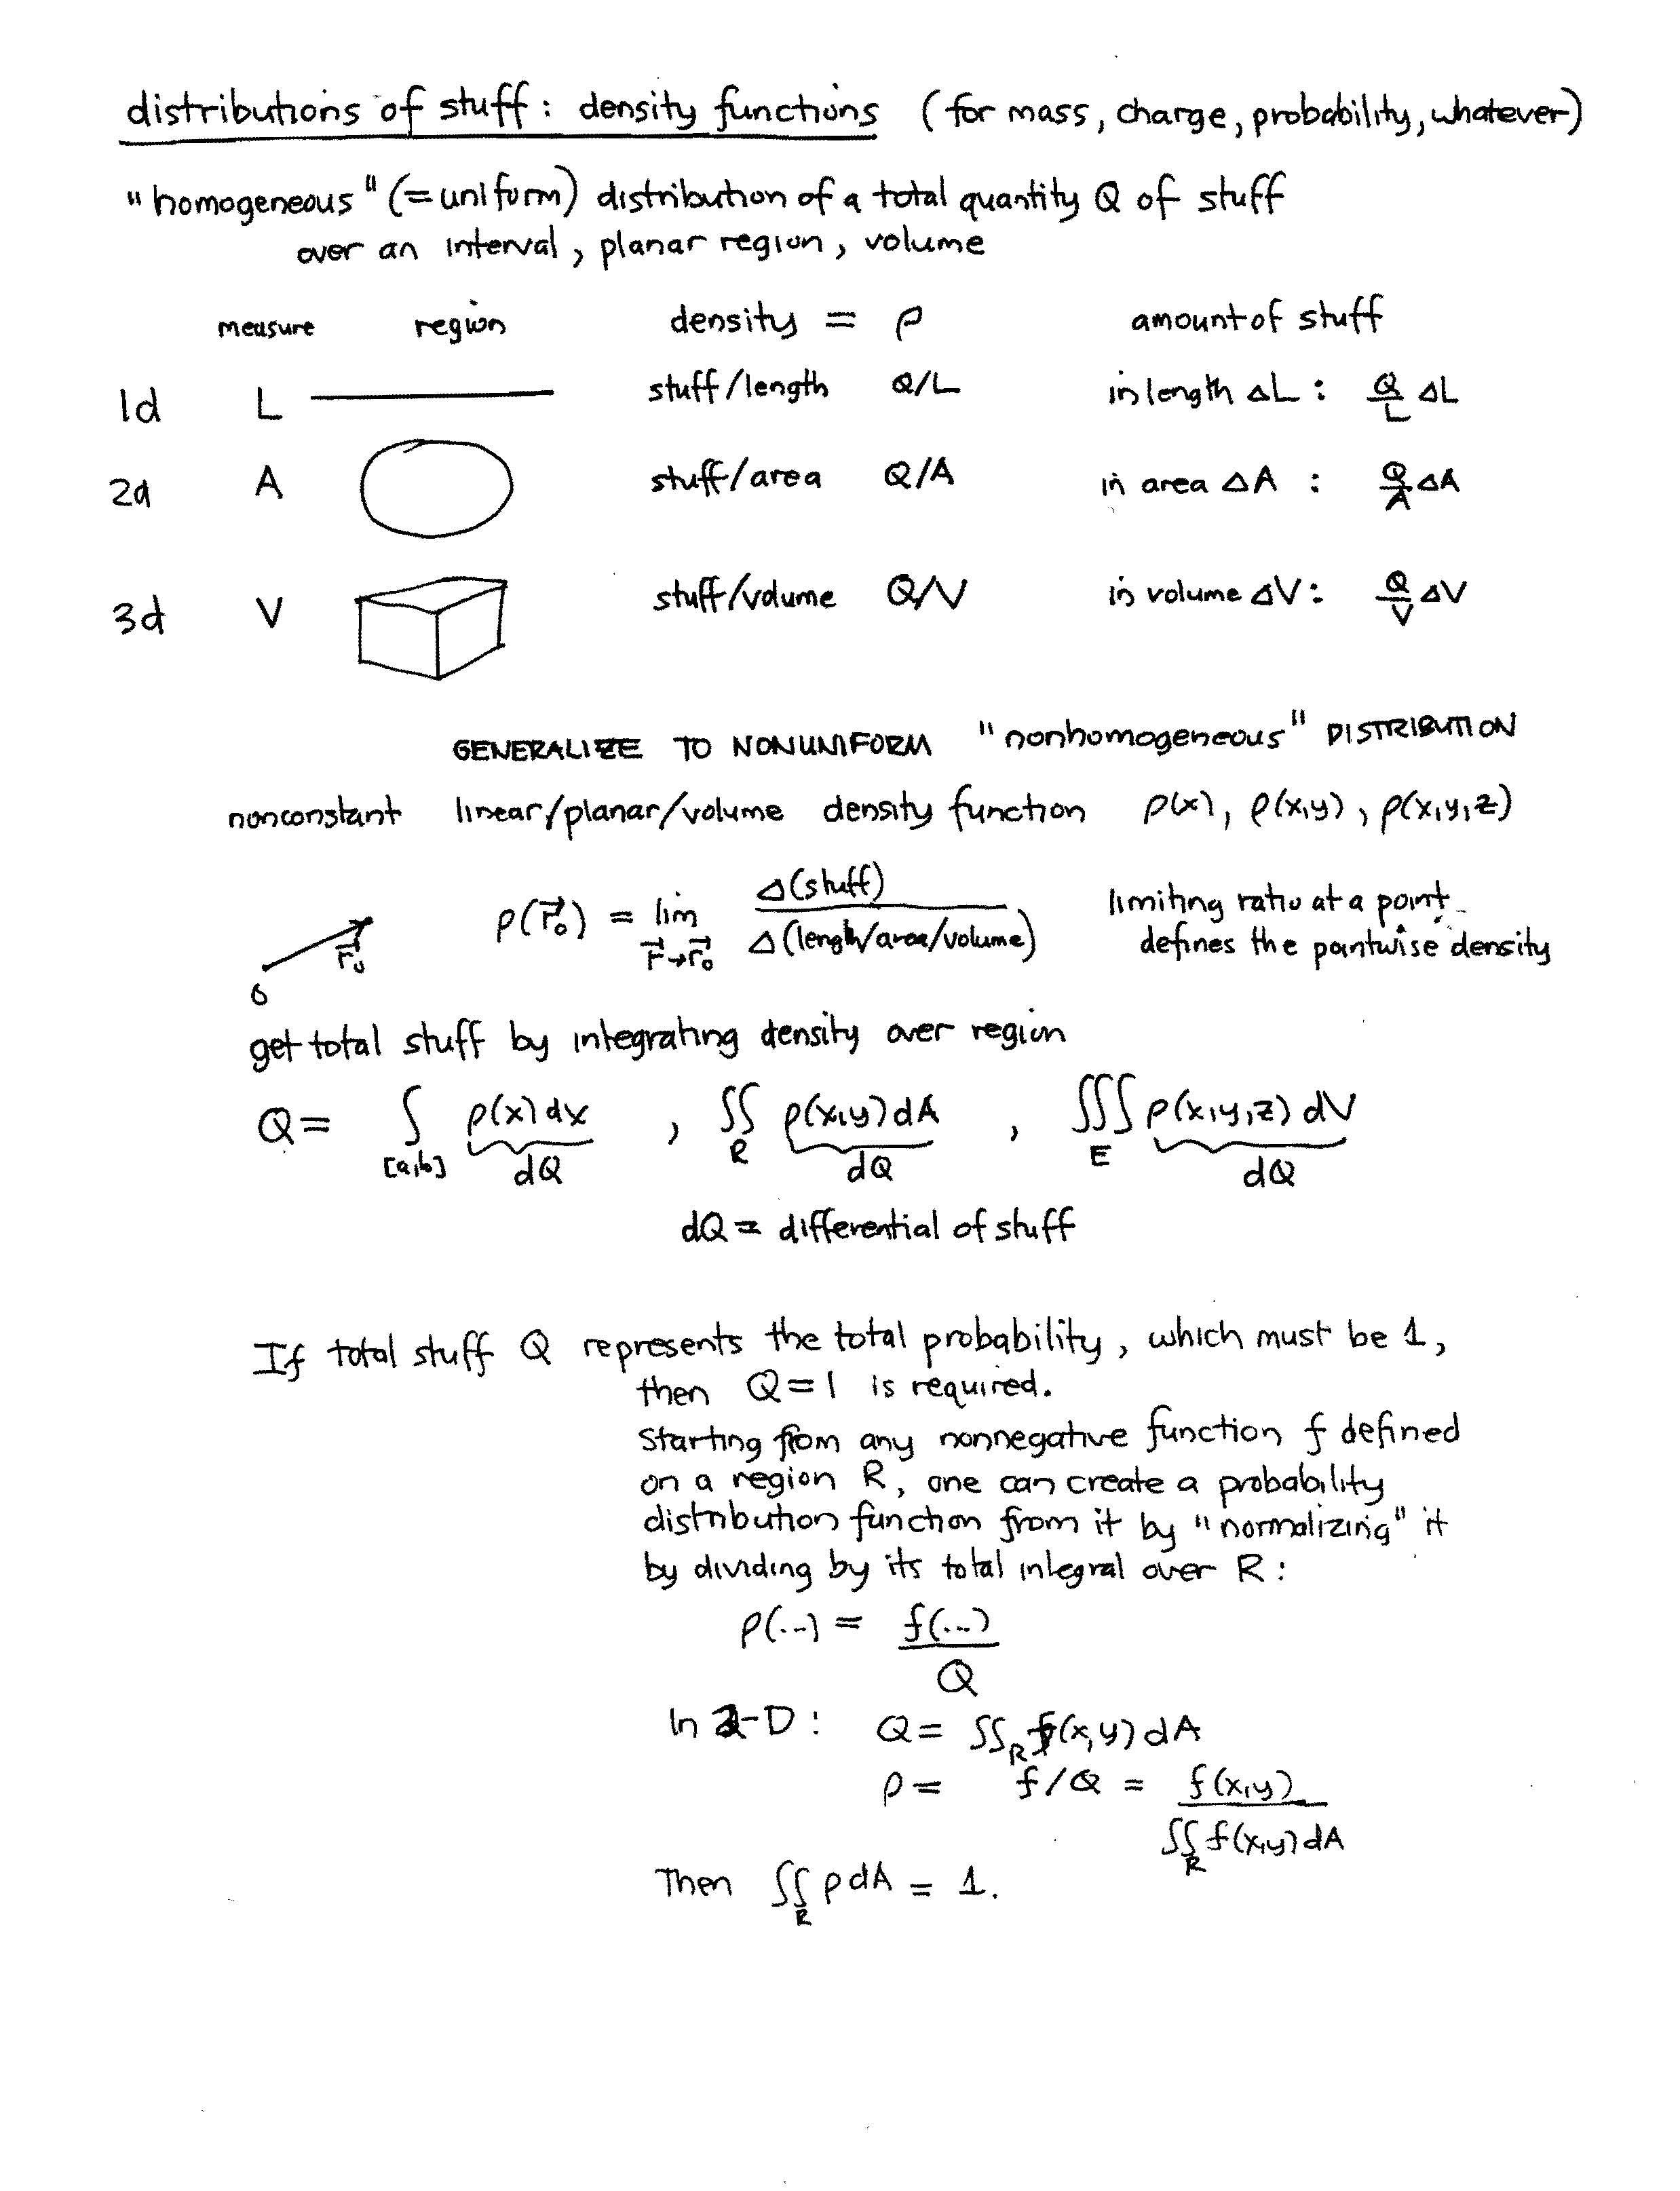 distributions of stuff: density functions (for mass, charge, probability, whatever)
"homogeneous" (=uniform) distribution of a total quantity Q of stuff
over an interval, planar region, volume
measure region density = ρ amount of stuff
1d L stuff/length Q/L in length ΔL: Q/L ΔL
2d A stuff/area Q/A in area ΔA : Q/A ΔA
3d V stuff/volume Q/V in volume ΔV: Q/V ΔV
GENERALIZE TO NONUNIFORM "nonhomogeneous" DISTRIBUTION
nonconstant linear/planar/volume density function ρ(x), ρ(x,y), ρ(x,y,z)
0 r⃗₀ ρ(r⃗₀) = lim r⃗→r⃗₀ Δ(stuff) / Δ(length/area/volume) limiting ratio at a point
defines the pointwise density
get total stuff by integrating density over region
Q = ∫[a,b] ρ(x)dx , ∫∫R ρ(x,y)dA , ∫∫∫E ρ(x,y,z) dV
dQ dQ dQ
dQ = differential of stuff
If total stuff Q represents the total probability, which must be 1,
then Q=1 is required.
Starting from any nonnegative function f defined
on a region R, one can create a probability
distribution function from it by "normalizing" it
by dividing by its total integral over R:
ρ(...) = f(...) / Q
In 2-D: Q = ∫∫R f(x,y) dA
ρ = f/Q = f(x,y) / ∫∫R f(x,y)dA
Then ∫∫R ρ dA = 1.